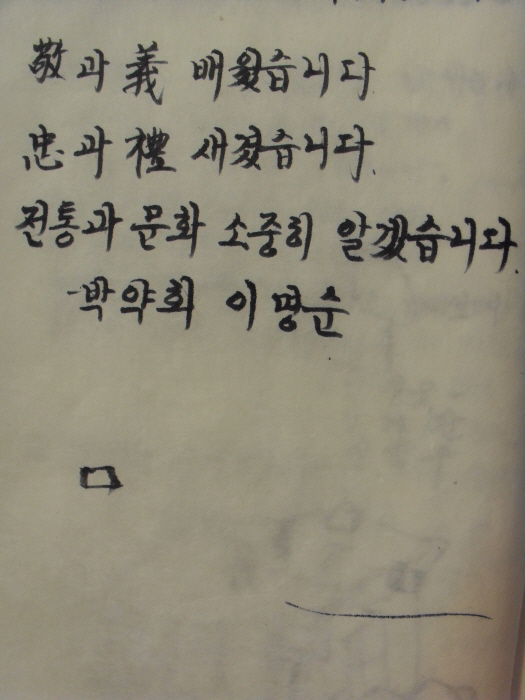 敬과 義 배웠습니다
忠과 禮 새겼습니다.
전통과 문화 소중히 알겠습니다.
-박약회 이명순